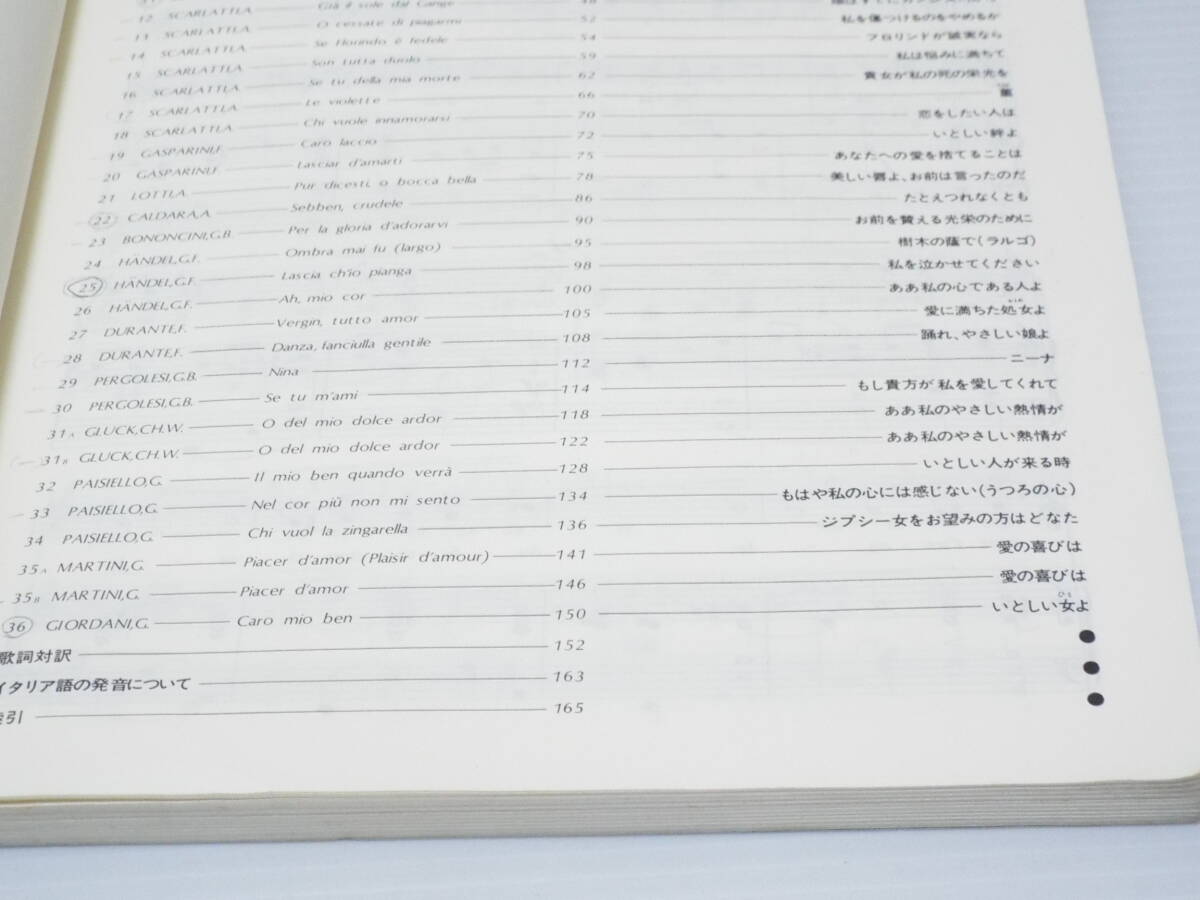 12 SCARLATTI,A. Già il sole dal Gange 48
13 SCARLATTI,A. O cessate di piagarmi 52 私を傷つけるのをやめるか
14 SCARLATTI,A. Se Florindo è fedele 54 フロリンドが誠実なら
15 SCARLATTI,A. Son tutta duolo 59 私は悩みに満ちて
16 SCARLATTI,A. Se tu della mia morte 62 貴女が私の死の栄光を
17 SCARLATTI,A. Le violette 66 菫
18 SCARLATTI,A. Chi vuole innamorarsi 70 恋をしたい人は
19 GASPARINI,F. Caro laccio 72 いとしい絆よ
20 GASPARINI,F. Lasciar d'amarti 75 あなたへの愛を捨てることは
21 LOTTI,A. Pur dicesti, o bocca bella 78 美しい唇よ、お前は言ったのだ
22 CALDARA,A. Sebben, crudele 86 たとえつれなくとも
23 BONONCINI,G.B. Per la gloria d'adorarvi 90 お前を賛える光栄のために
24 HÄNDEL,G.F. Ombra mai fu (largo) 95 樹木の蔭で(ラルゴ)
25 HÄNDEL,G.F. Lascia ch'io pianga 98 私を泣かせてください
26 HÄNDEL,G.F. Ah, mio cor 100 ああ私の心である人よ
27 DURANTE,F. Vergin, tutto amor 105 愛に満ちた処女よ
28 DURANTE,F. Danza, fanciulla gentile 108 踊れ、やさしい娘よ
29 PERGOLESI,G.B. Nina 112 ニーナ
30 PERGOLESI,G.B. Se tu m'ami 114 もし貴方が私を愛してくれて
31A GLUCK,CH.W. O del mio dolce ardor 118 ああ私のやさしい熱情が
31B GLUCK,CH.W. O del mio dolce ardor 122 ああ私のやさしい熱情が
32 PAISIELLO,G. Il mio ben quando verrà 128 いとしい人が来る時
33 PAISIELLO,G. Nel cor più non mi sento 134 もはや私の心には感じない(うつろの心)
34 PAISIELLO,G. Chi vuol la zingarella 136 ジプシー女をお望みの方はどなた
35A MARTINI,G. Piacer d'amor (Plaisir d'amour) 141 愛の喜びは
35B MARTINI,G. Piacer d'amor 146 愛の喜びは
36 GIORDANI,G. Caro mio ben 150 いとしい女よ
歌詞対訳 152
イタリア語の発音について 163
索引 165